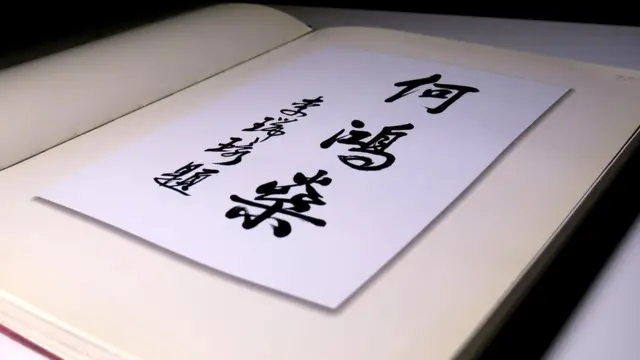 何鴻燊
李瑞琦題